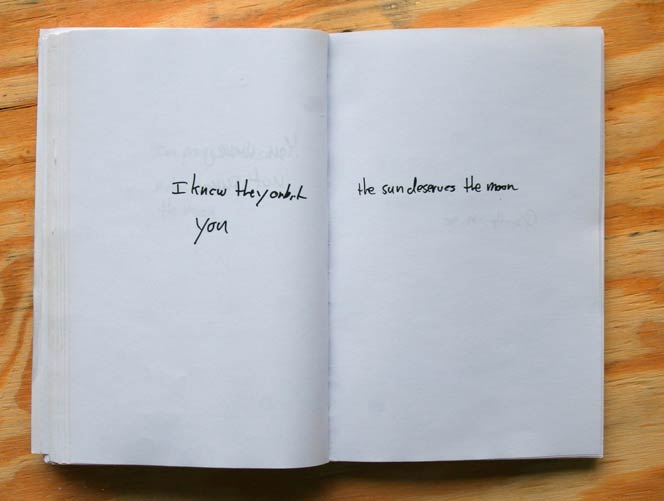 I knew they orbit
you
the sun deserves the moon